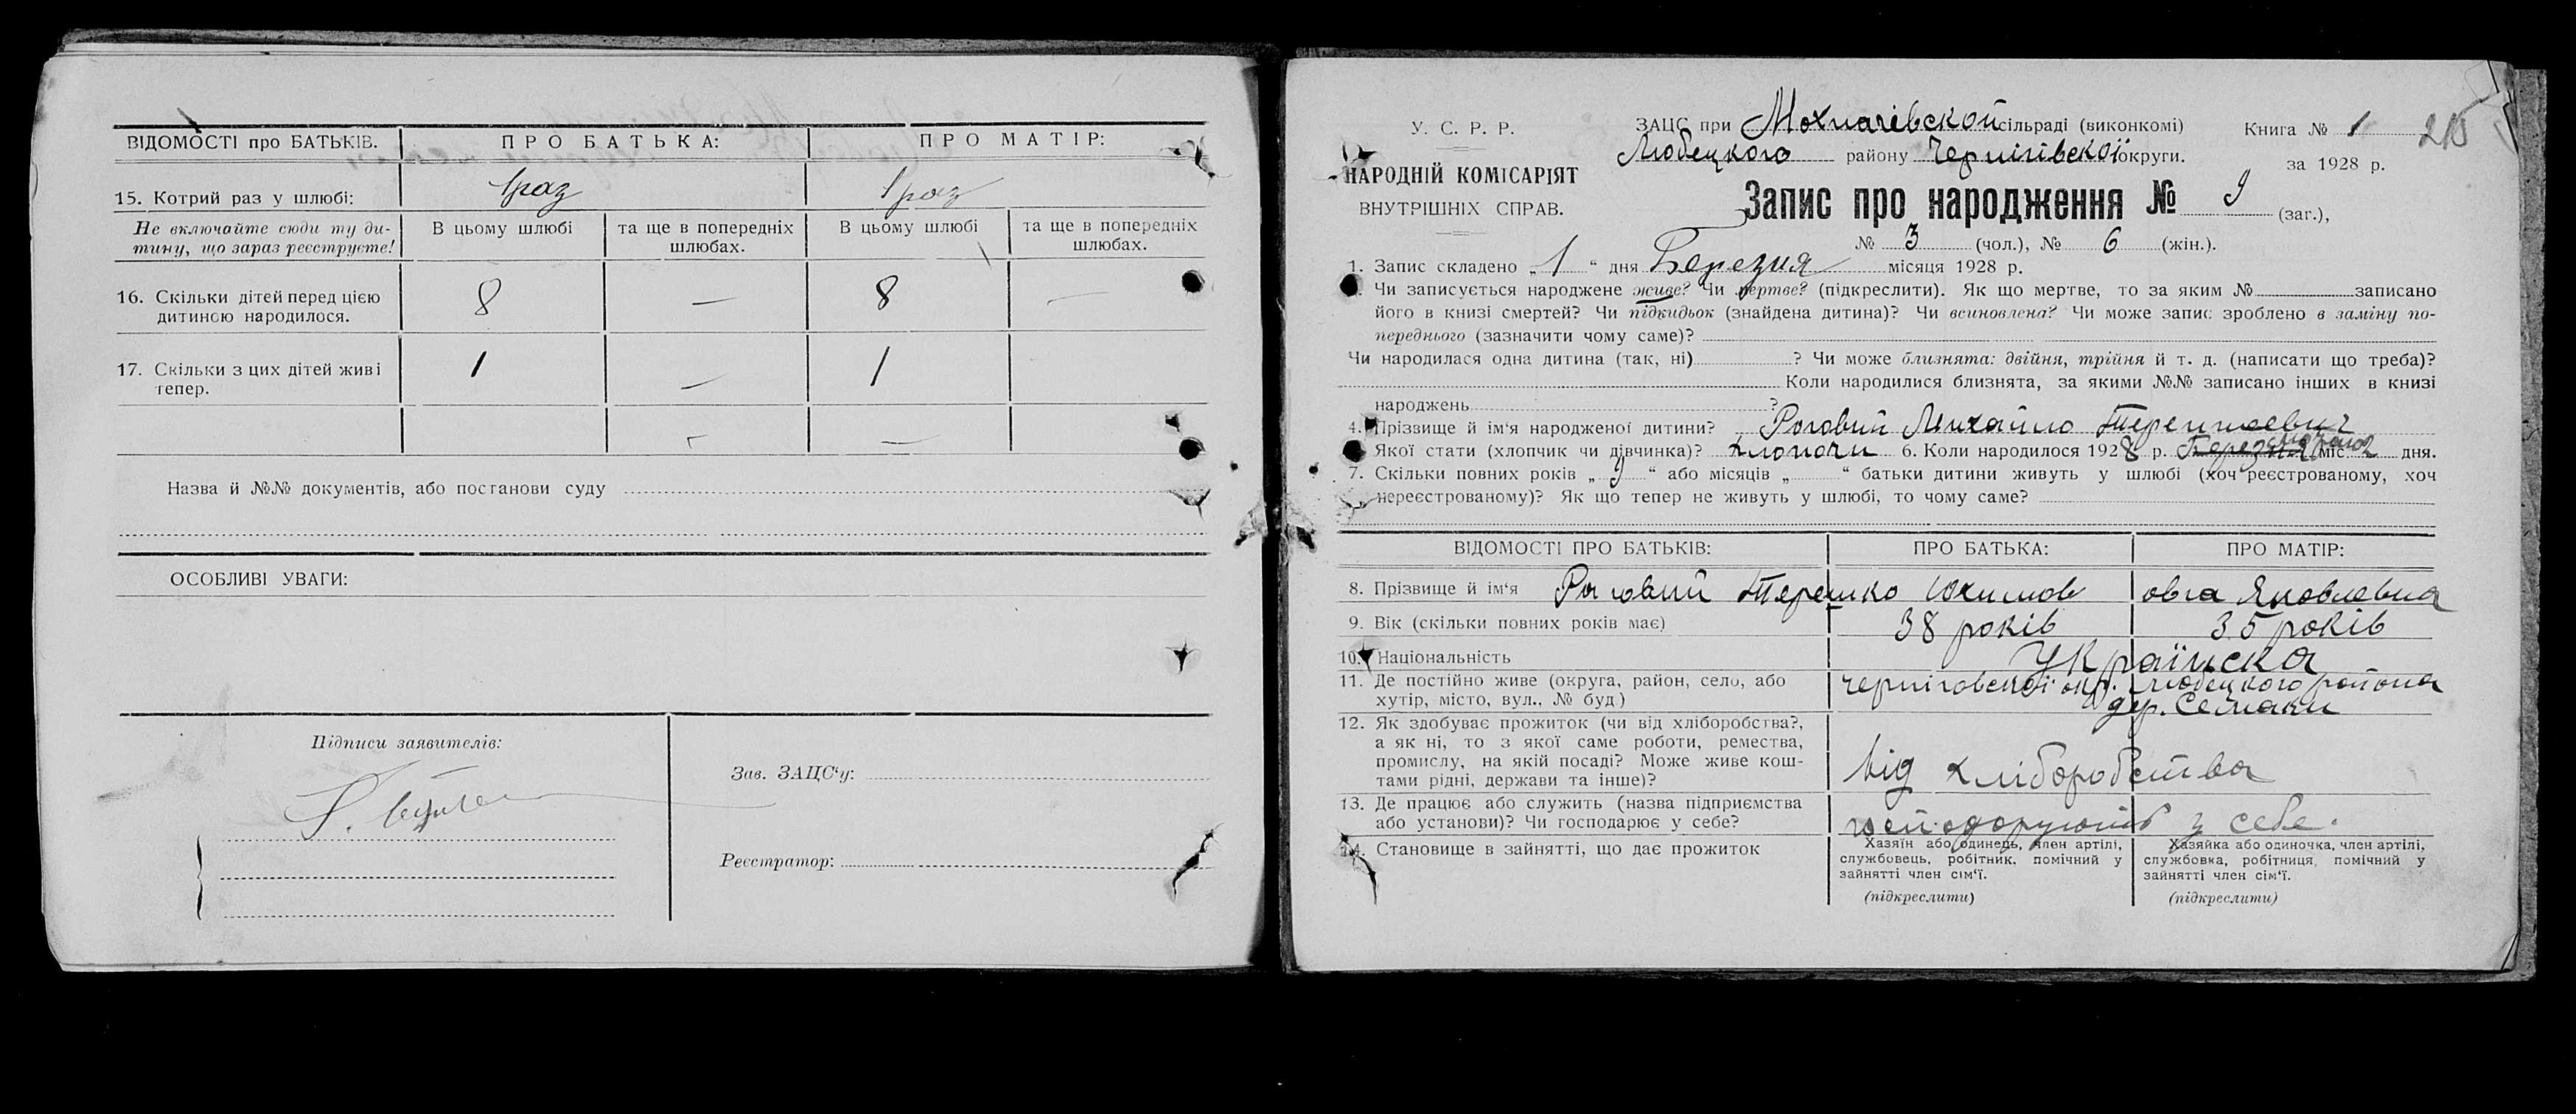 ВІДОМОСТІ про БАТЬКІВ. ПРО БАТЬКА: ПРО МАТІР:
15. Котрий раз у шлюбі: 1 раз 1 раз
Не включайте сюди ту ди-
тину, що зараз реєструєте!
В цьому шлюбі та ще в попередніх шлюбах. В цьому шлюбі та ще в попередніх шлюбах.
16. Скільки дітей перед цією
дитиною народилося. 8 — 8 —
17. Скільки з цих дітей живі
тепер. 1 — 1
Назва й №№ документів, або постанови суду
ОСОБЛИВІ УВАГИ:
Підписи заявителів:
Зав. ЗАЦС'у:
Реєстратор:
У. С. Р. Р.
НАРОДНІЙ КОМІСАРІЯТ
ВНУТРІШНІХ СПРАВ.
ЗАЦС при Мохначевской сільраді (виконкомі)
Любецкого району Чернігівскої округи.
Книга № 1 215
за 1928 р.
Запис про народження № 9 (заг.),
№ 3 (чол.), № 6 (жін.).
1. Запис складено „ 1 “ дня Березня місяця 1928 р.
Чи записується народжене живе? Чи мертве? (підкреслити). Як що мертве, то за яким № записано
його в книзі смертей? Чи підкидьок (знайдена дитина)? Чи всиновлена? Чи може запис зроблено в заміну по-
переднього (зазначити чому саме)?
Чи народилася одна дитина (так, ні) ? Чи може близнята: двійня, трійня й т. д. (написати що треба)?
Коли народилися близнята, за якими №№ записано інших в книзі
народжень ?
4. Прізвище й ім'я народженої дитини? Роговий Михайло Терешкевич
Якої стати (хлопчик чи дівчинка)? хлопочи 6. Коли народилося 1928 р. Березня міс 2 дня.
7. Скільки повних років „ 9 “ або місяців „ “ батьки дитини живуть у шлюбі (хоч реєстрованому, хоч
нереєстрованому)? Як що тепер не живуть у шлюбі, то чому саме?
ВІДОМОСТІ ПРО БАТЬКІВ: ПРО БАТЬКА: ПРО МАТІР:
8. Прізвище й ім'я Роговий Терешко Юхимов овга Яковлевна
9. Вік (скільки повних років має) 38 років 35 років
10. Національність Українска
11. Де постійно живе (округа, район, село, або
хутір, місто, вул., № буд.) Черніговскої окр. Любецкого района
дер. Семаки
12. Як здобуває прожиток (чи від хліборобства?,
а як ні, то з якої саме роботи, ремества,
промислу, на якій посаді? Може живе кош-
тами рідні, держави та інше)? від хліборобства
13. Де працює або служить (назва підприємства
або установи)? Чи господарює у себе? господарують у себе.
14. Становище в зайнятті, що дає прожиток
Хазяїн або одинець, член артілі,
службовець, робітник, помічний у
зайнятті член сім'ї.
(підкреслити)
Хазяйка або одиночка, член артілі,
службовка, робітниця, помічний у
зайнятті член сім'ї.
(підкреслити)